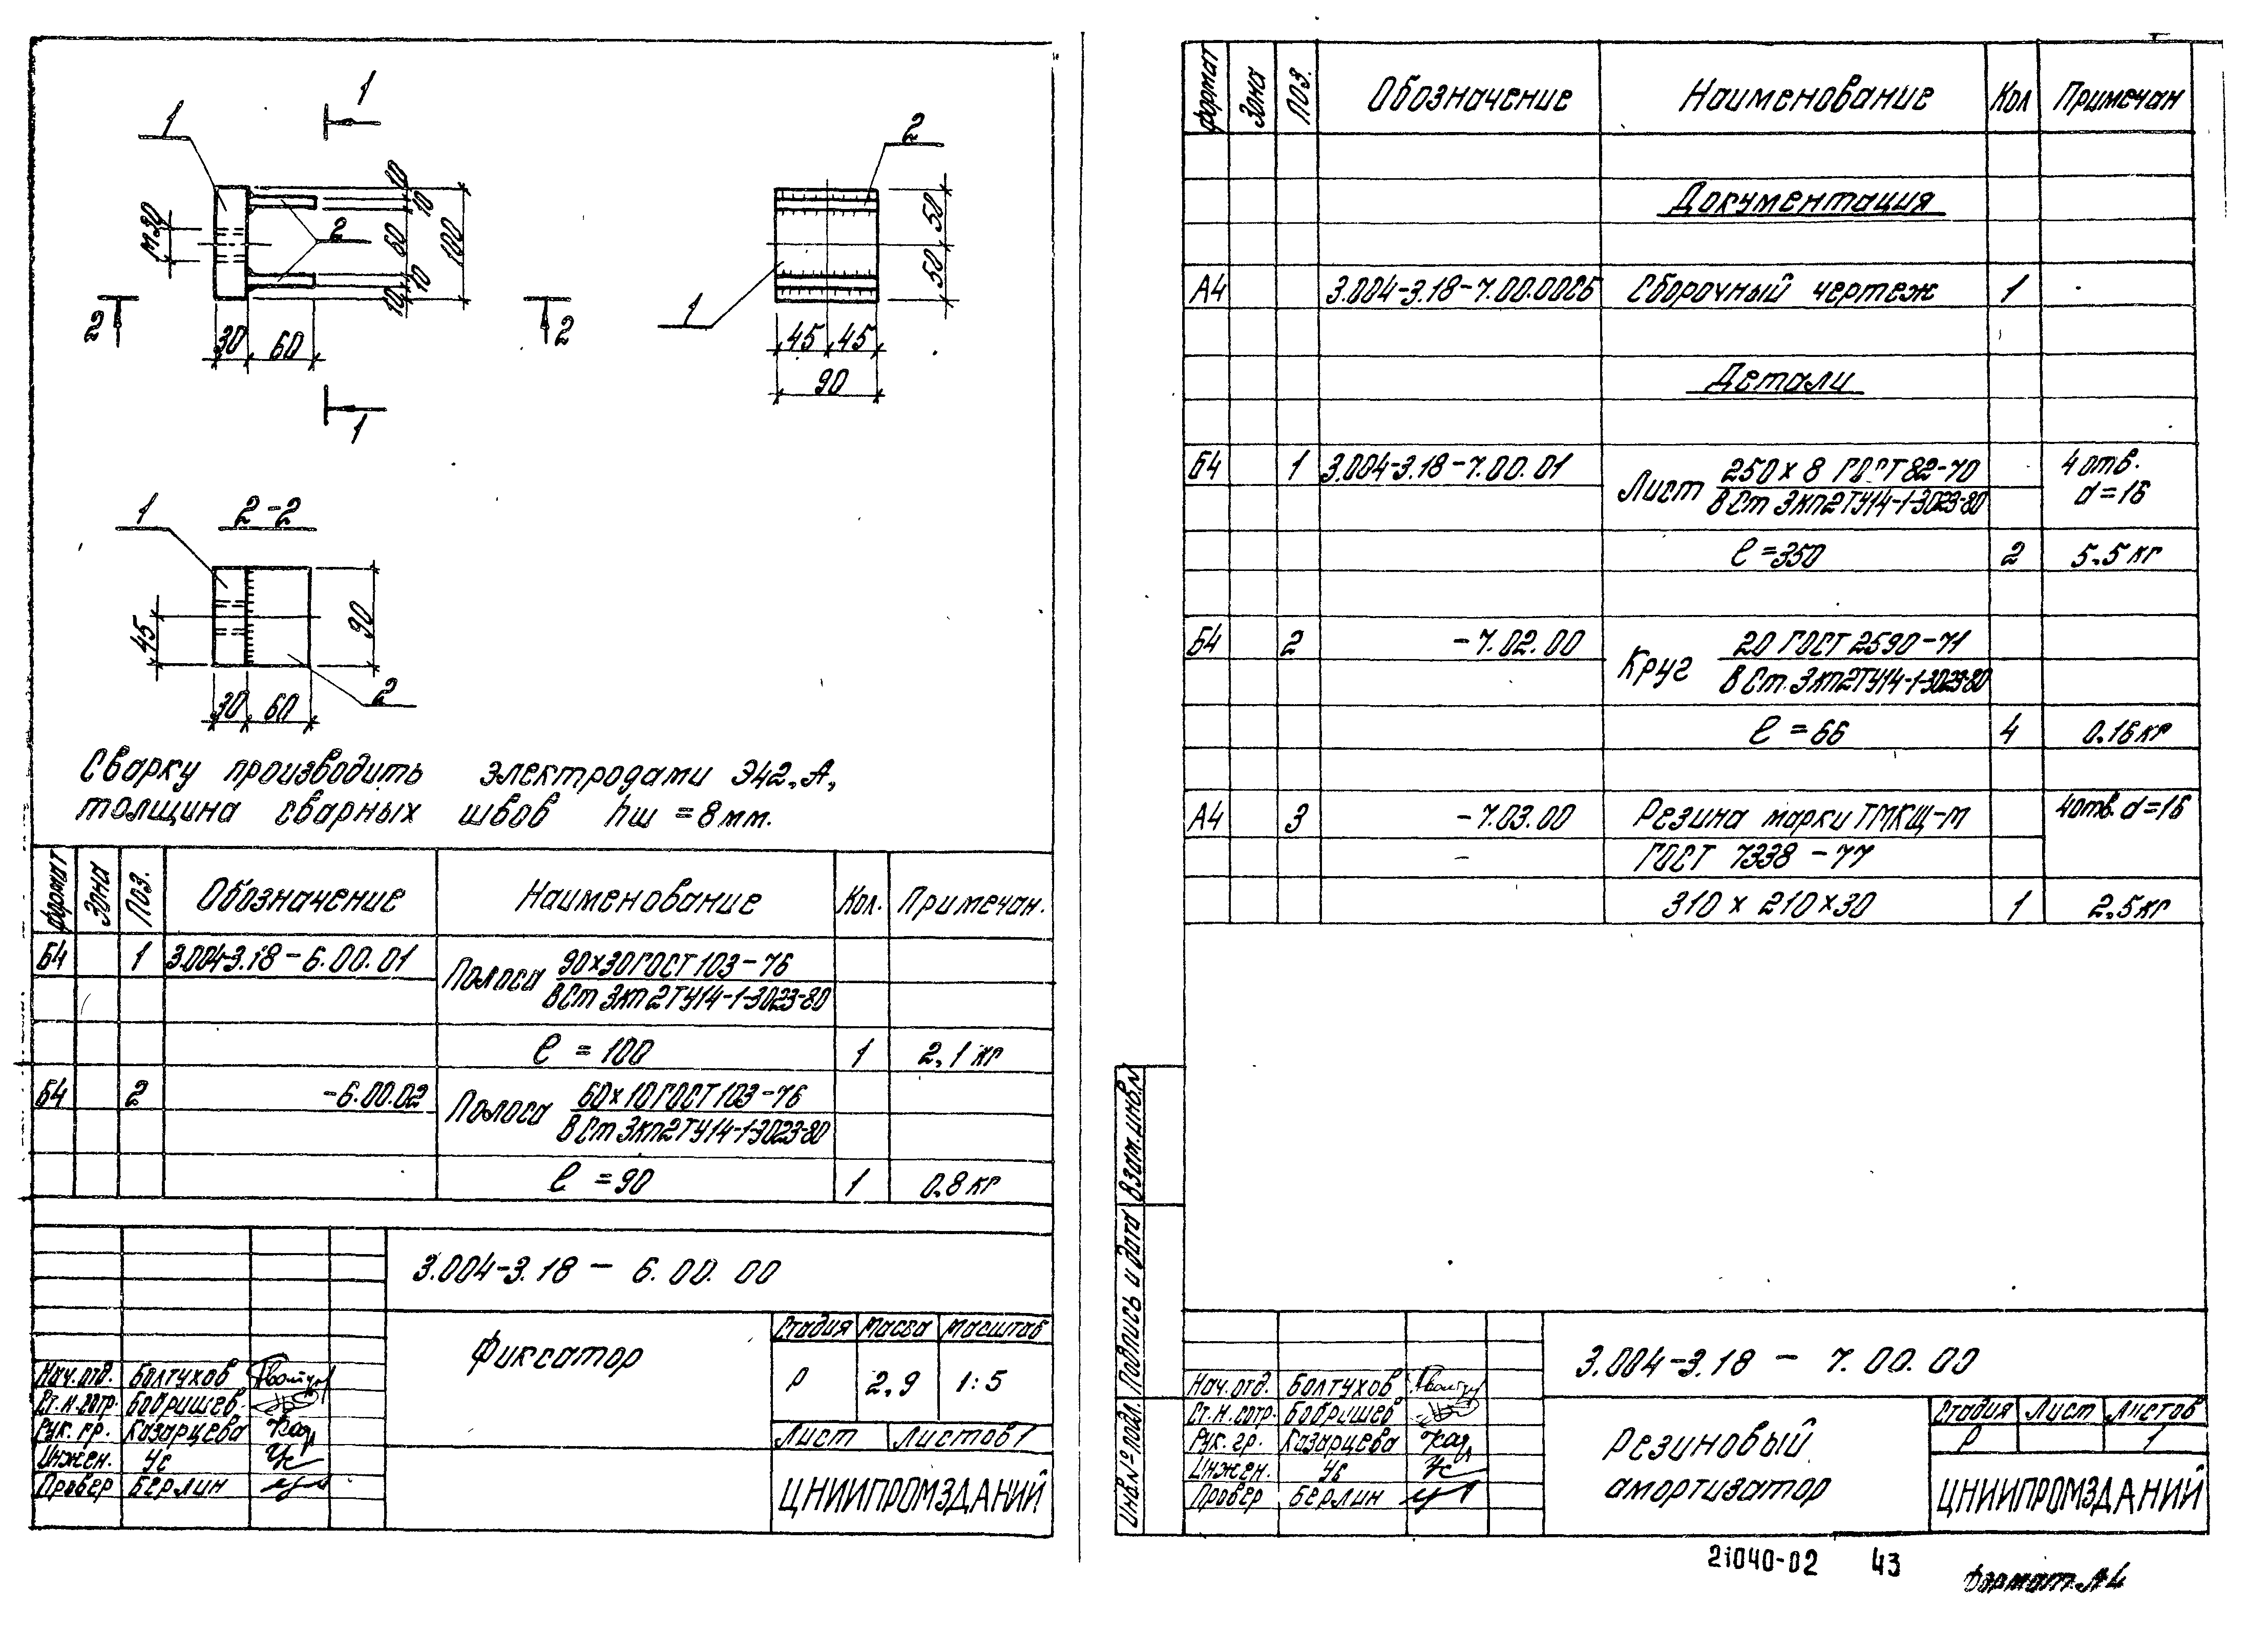 1
1
М30
2
10
10
60
100
10
10
2
2
30
60
1
2
1
50
50
45
45
90
1
2-2
45
90
30
60
2
Сварку производить электродами Э42.А,
толщина сварных швов hш = 8 мм.
формат Зона Поз. Обозначение Наименование Кол. Примечан.
Б4 1 3.004-3.18-6.00.01 Полоса 90х30 ГОСТ 103-76
В Ст 3кп2 ТУ14-1-3023-80
ℓ = 100 1 2,1 кг
Б4 2 -6.00.02 Полоса 60х10 ГОСТ 103-76
В Ст 3кп2 ТУ14-1-3023-80
ℓ = 90 1 0.8 кг
3.004-3.18 - 6.00.00
Фиксатор
Стадия Масса Масштаб
Р 2,9 1:5
Лист Листов 1
ЦНИИПРОМЗДАНИЙ
Нач. отд. Болтухов
Ст. н. сотр. Бобришев
Рук. гр. Казарцева
Инжен. Ус
Провер Берлин
формат Зона Поз. Обозначение Наименование Кол Примечан
Документация
А4 3.004-3.18-7.00.00СБ Сборочный чертеж 1
Детали
Б4 1 3.004-3.18-7.00.01 Лист 250х8 ГОСТ 82-70 4 отв.
В Ст 3кп2 ТУ14-1-3023-80 d=16
ℓ = 350 2 5.5 кг
Б4 2 -7.02.00 Круг 20 ГОСТ 2590-71
В Ст. 3кп2 ТУ14-1-3023-80
ℓ = 66 4 0.16 кг
А4 3 -7.03.00 Резина марки ТМКЩ-М 4 отв. d=16
- ГОСТ 7338-77
310 х 210 х 30 1 2,5 кг
Взам. инв. N
Подпись и дата
Инв. № подл.
3.004-3.18 - 7.00.00
Резиновый
амортизатор
Стадия Лист Листов
Р 1
ЦНИИПРОМЗДАНИЙ
Нач. отд. Болтухов
Ст. н. сотр. Бобришев
Рук. гр. Казарцева
Инжен. Ус
Провер Берлин
21040-02 43
Формат А4